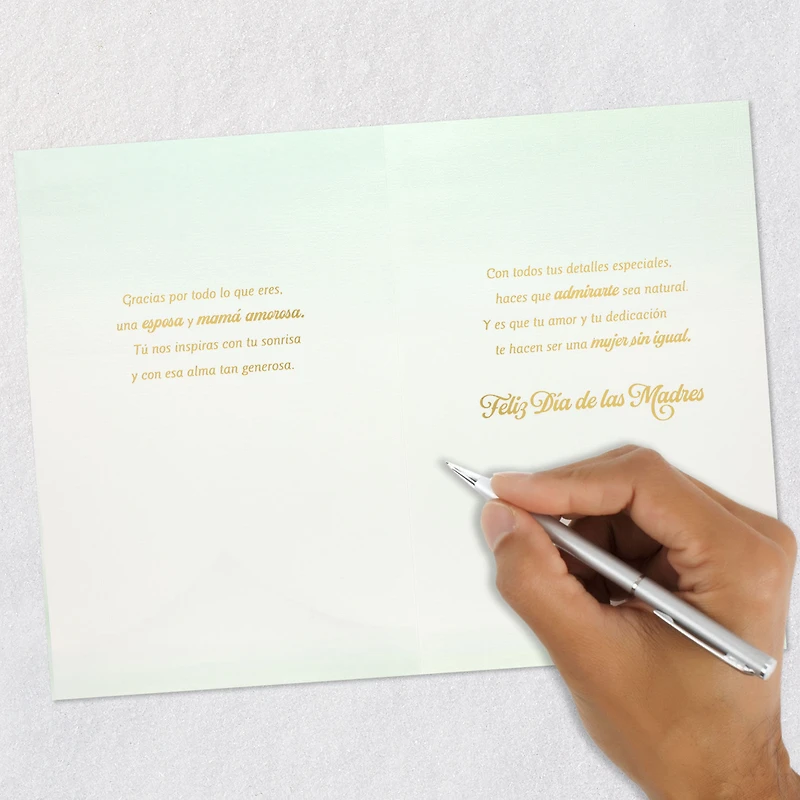 Gracias por todo lo que eres,
una esposa y mamá amorosa.
Tú nos inspiras con tu sonrisa
y con esa alma tan generosa.
Con todos tus detalles especiales,
haces que admirarte sea natural.
Y es que tu amor y tu dedicación
te hacen ser una mujer sin igual.
Feliz Día de las Madres